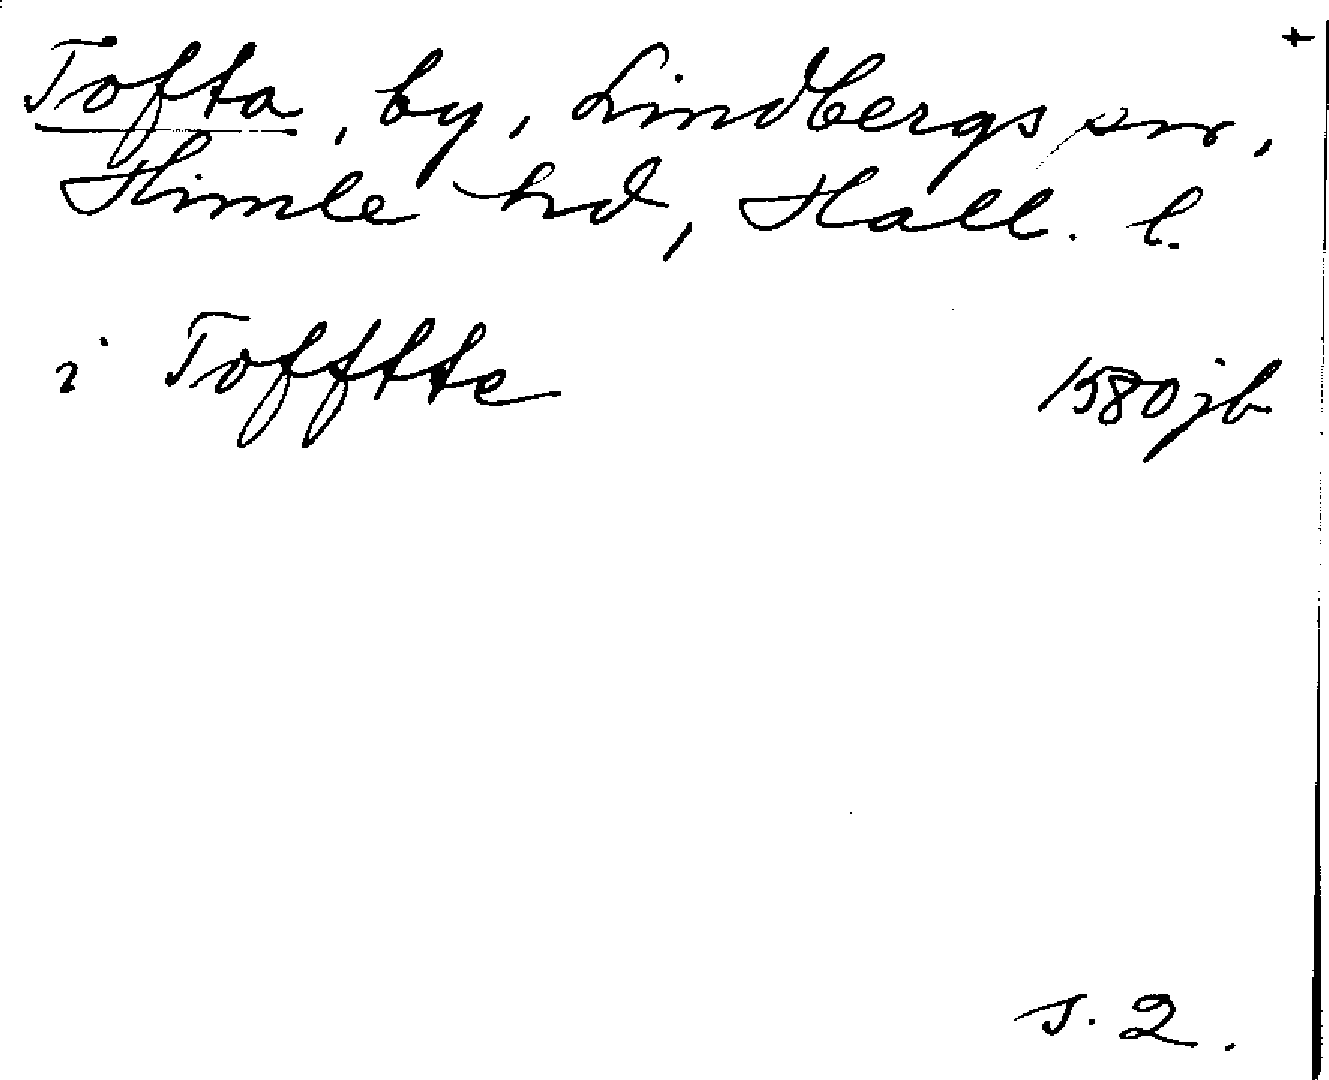 Tofta, by, Lindbergs snr,
Himle hd, Hall. l.
i Tofftte 1580 jb
s. 2.